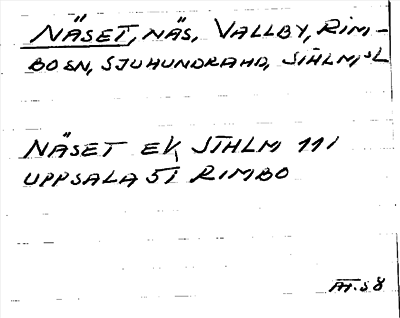 NÄSET, NÄS, VALLBY, RIM-
BO SN, SJUHUNDRAHD, STHLM,SL
NÄSET EK STHLM 111
UPPSALA 5I RIMBO